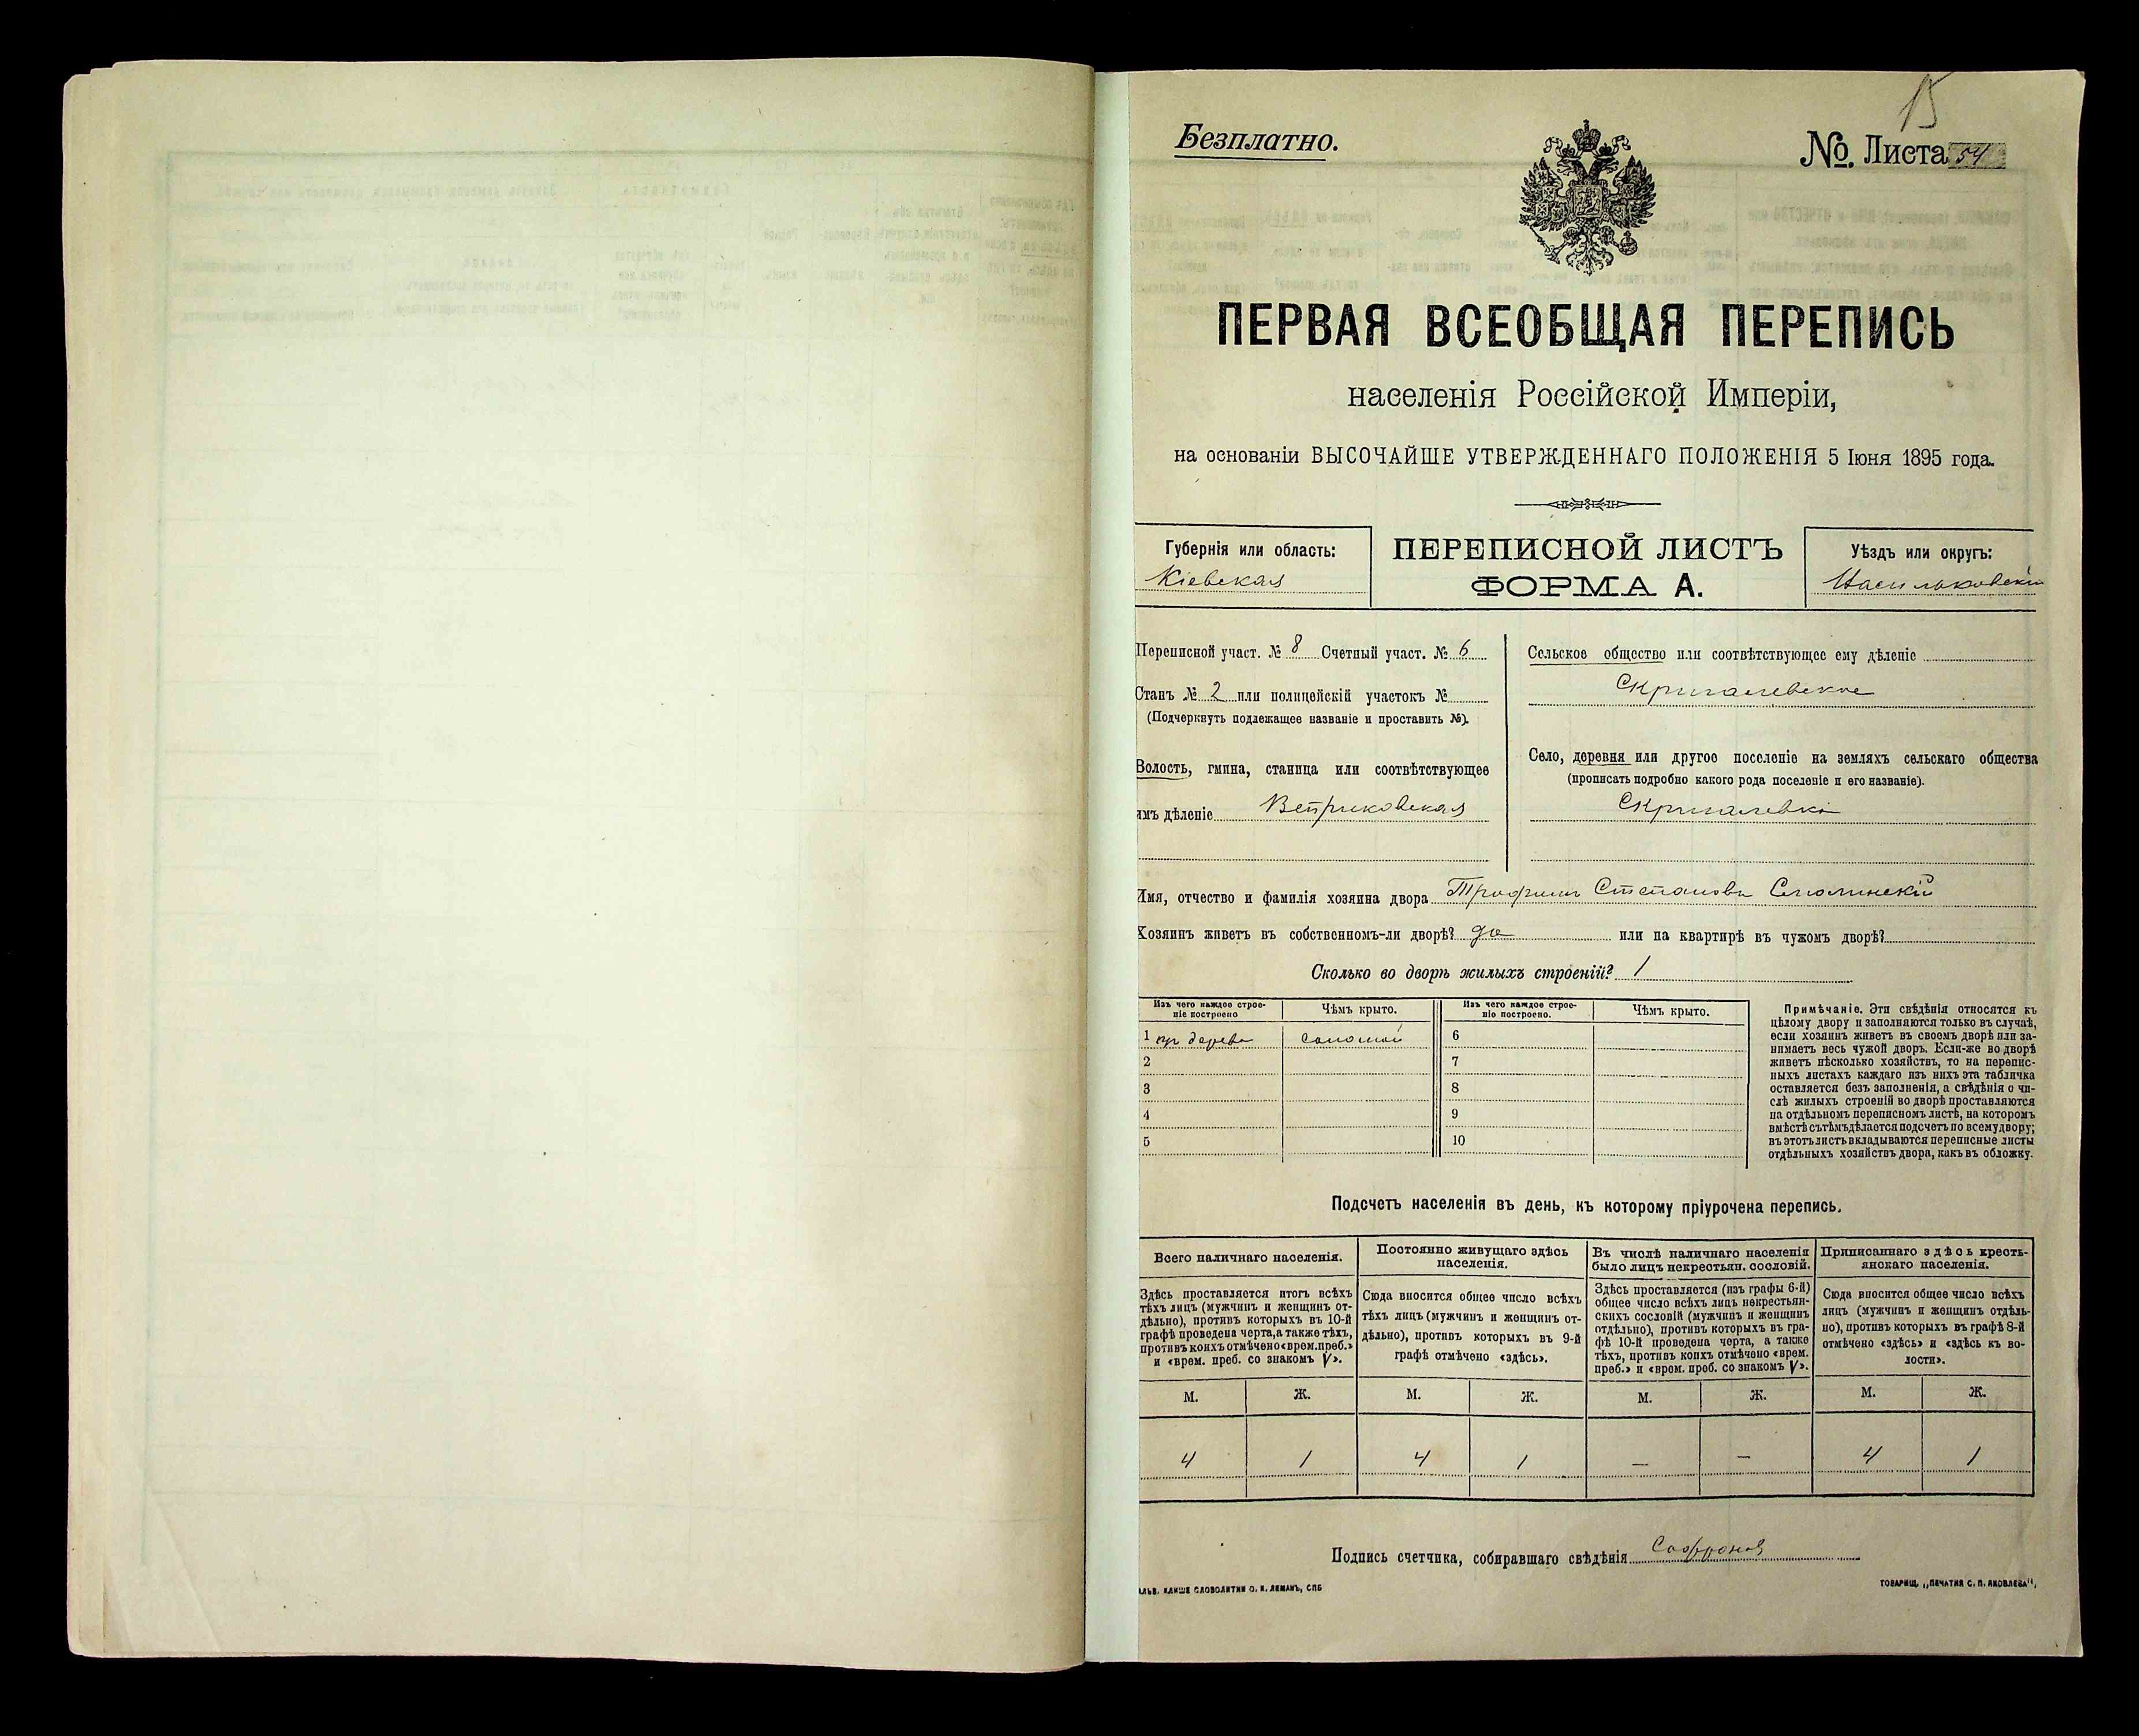 15
Безплатно.
№. Листа 54
ПЕРВАЯ ВСЕОБЩАЯ ПЕРЕПИСЬ
населенія Россійской Имперіи,
на основаніи ВЫСОЧАЙШЕ УТВЕРЖДЕННАГО ПОЛОЖЕНІЯ 5 Іюня 1895 года.
Губернія или область:
Кіевская
ПЕРЕПИСНОЙ ЛИСТЪ
ФОРМА А.
Уѣздъ или округъ:
Васильковскій
Переписной участ. № 8 Счетный участ. № 6
Станъ № 2 или полицейскій участокъ №
(Подчеркнуть подлежащее названіе и проставить №).
Волость, гмина, станица или соотвѣтствующее
имъ дѣленіе Ветриковская
Сельское общество или соотвѣтствующее ему дѣленіе
Скригалевское
Село, деревня или другое поселеніе на земляхъ сельскаго общества
(прописать подробно какого рода поселеніе и его названіе).
Скригалевка
Имя, отчество и фамилія хозяина двора Трофимъ Степановъ Смолинскій
Хозяинъ живетъ въ собственномъ-ли дворѣ? да или на квартирѣ въ чужомъ дворѣ?
Сколько во дворѣ жилыхъ строеній? 1
Изъ чего каждое строе-
ніе построено
Чѣмъ крыто.
Изъ чего каждое строе-
ніе построено.
Чѣмъ крыто.
1 дерева соломой 6
2 7
3 8
4 9
5 10
Примѣчаніе. Эти свѣдѣнія относятся къ
цѣлому двору и заполняются только въ случаѣ,
если хозяинъ живетъ въ своемъ дворѣ или за-
нимаетъ весь чужой дворъ. Если-же во дворѣ
живетъ нѣсколько хозяйствъ, то на перепис-
ныхъ листахъ каждаго изъ нихъ эта табличка
оставляется безъ заполненія, а свѣдѣнія о чи-
слѣ жилыхъ строеній во дворѣ проставляются
на отдѣльномъ переписномъ листѣ, на которомъ
вмѣстѣ съ тѣмъ дѣлается подсчетъ по всему двору;
въ этотъ листъ вкладываются переписные листы
отдѣльныхъ хозяйствъ двора, какъ въ обложку.
Подсчетъ населенія въ день, къ которому пріурочена перепись.
Всего наличнаго населенія.
Здѣсь проставляется итогъ всѣхъ
тѣхъ лицъ (мужчинъ и женщинъ от-
дѣльно), противъ которыхъ въ 10-й
графѣ проведена черта, а также тѣхъ,
противъ коихъ отмѣчено «врем. преб.»
и «врем. преб. со знакомъ V».
Постоянно живущаго здѣсь
населенія.
Сюда вносится общее число всѣхъ
тѣхъ лицъ (мужчинъ и женщинъ от-
дѣльно), противъ которыхъ въ 9-й
графѣ отмѣчено «здѣсь».
Въ числѣ наличнаго населенія
было лицъ некрестьян. сословій.
Здѣсь проставляется (изъ графы 6-й)
общее число всѣхъ лицъ некрестьян-
скихъ сословій (мужчинъ и женщинъ
отдѣльно), противъ которыхъ въ гра-
фѣ 10-й проведена черта, а также
тѣхъ, противъ коихъ отмѣчено «врем.
преб.» и «врем. преб. со знакомъ V».
Приписаннаго здѣсь кресть-
янскаго населенія.
Сюда вносится общее число всѣхъ
лицъ (мужчинъ и женщинъ отдѣль-
но), противъ которыхъ въ графѣ 8-й
отмѣчено «здѣсь» и «здѣсь къ во-
лости».
М. Ж. М. Ж. М. Ж. М. Ж.
4 1 4 1 — — 4 1
Подпись счетчика, собиравшаго свѣдѣнія Сафронов
КЛИШЕ СЛОВОЛИТНИ О. И. ЛЕМАНЪ, СПБ
ТОВАРИЩ. „ПЕЧАТНЯ С. П. ЯКОВЛЕВА",